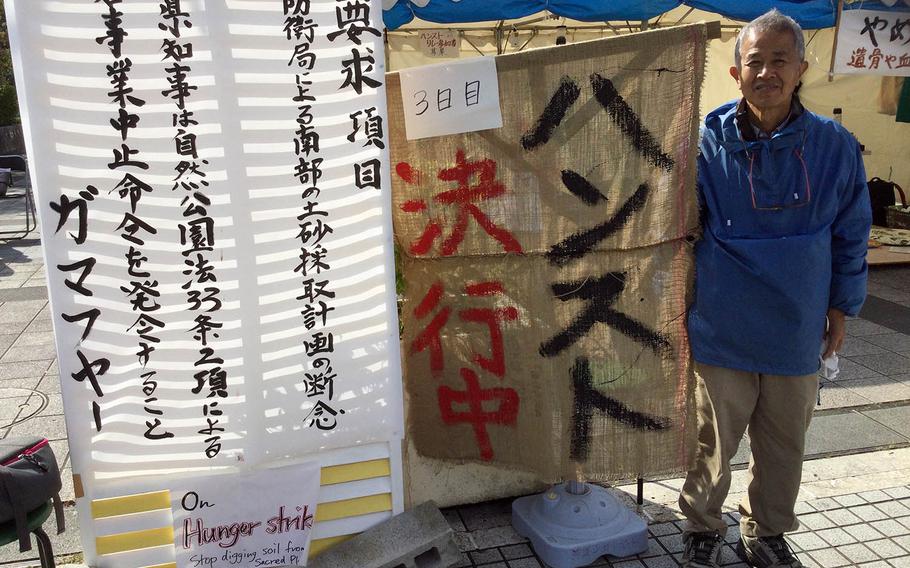 要求項目
防衛局による南部の土砂採取計画の断念
県知事は自然公園法33条2項による
事業中止命令を発令すること
ガマフヤー
On
Hunger strik
Stop digging soil from
Sacred Pl
3日目
ハンスト
決行中
ハンスト
やめ
遺骨や血